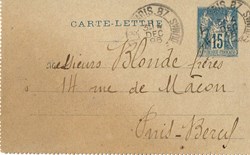 CARTE-LETTRE
15
DEC
Messieurs Blonde frères
14 rue de Mâcon
Paris-Bercy